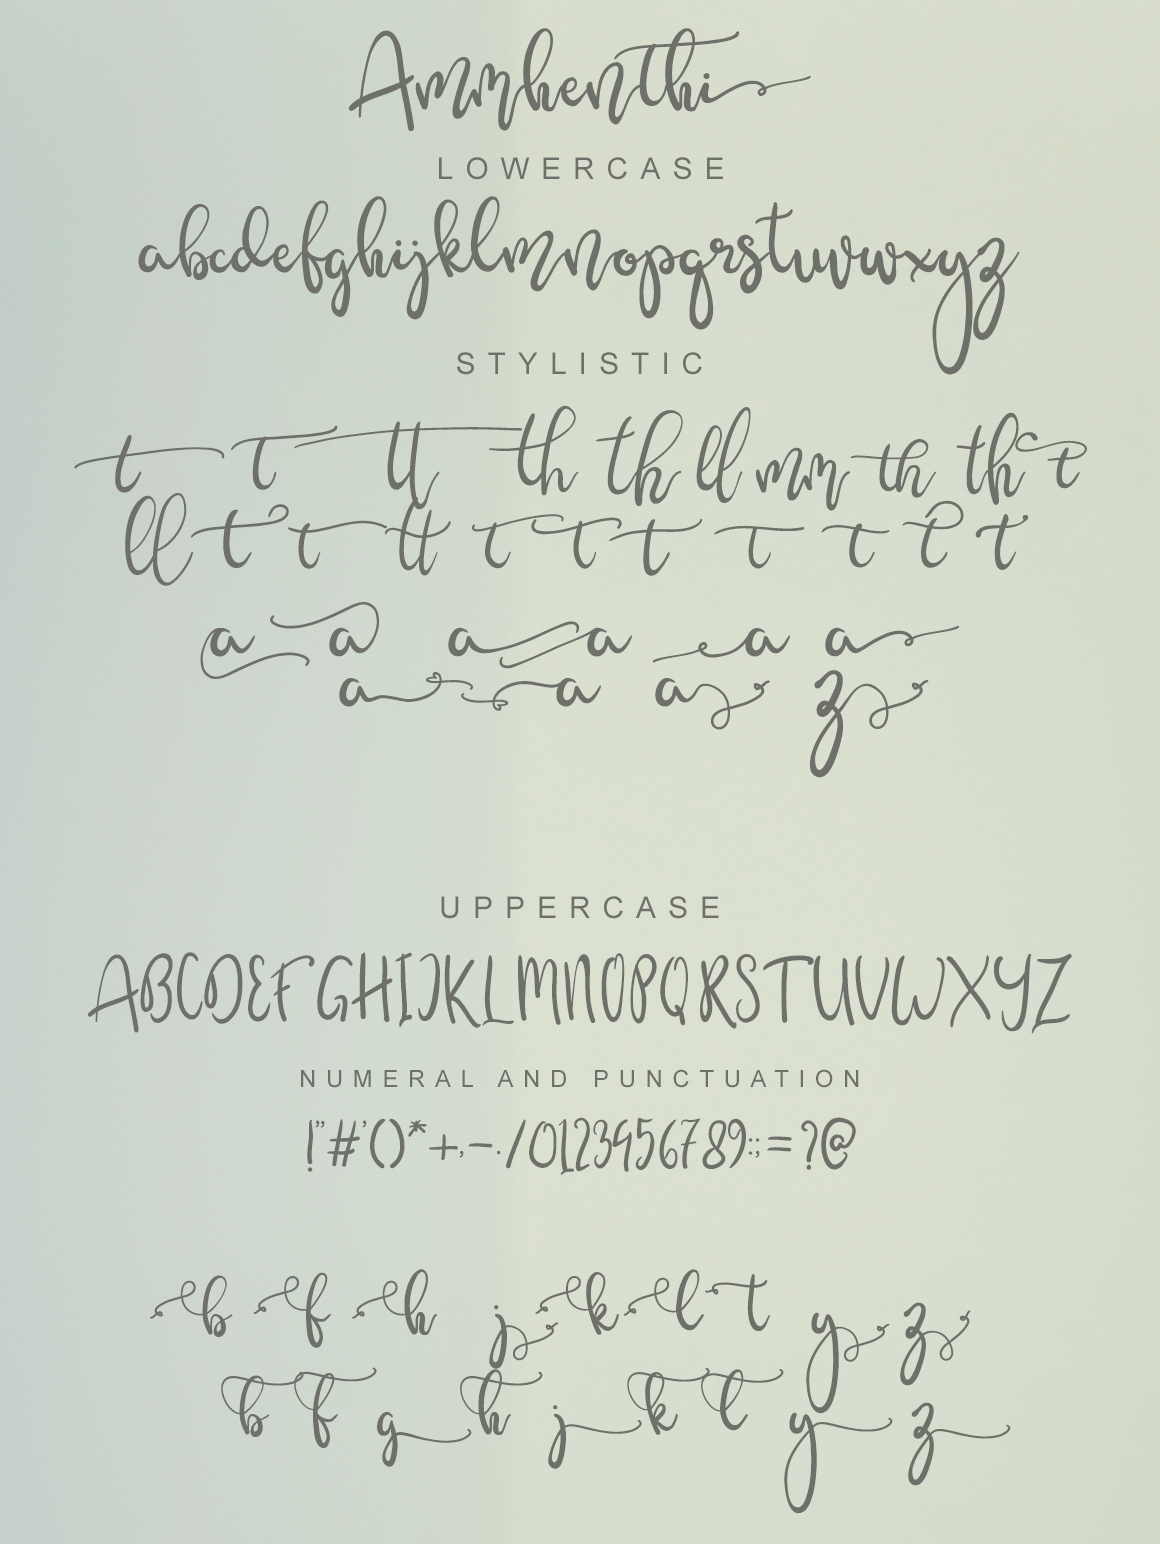 Ammhenthi
LOWERCASE
abcdefghijklmnopqrstuvwxyz
STYLISTIC
t t tt th th ll mm th th t
ll t t tt t t t t t t t
a a a a a a
a a a z
UPPERCASE
ABCDEFGHIJKLMNOPQRSTUVWXYZ
NUMERAL AND PUNCTUATION
!"#'()*+,-./0123456789:;=?@
b f h j k l t y z
b f g h j k l y z